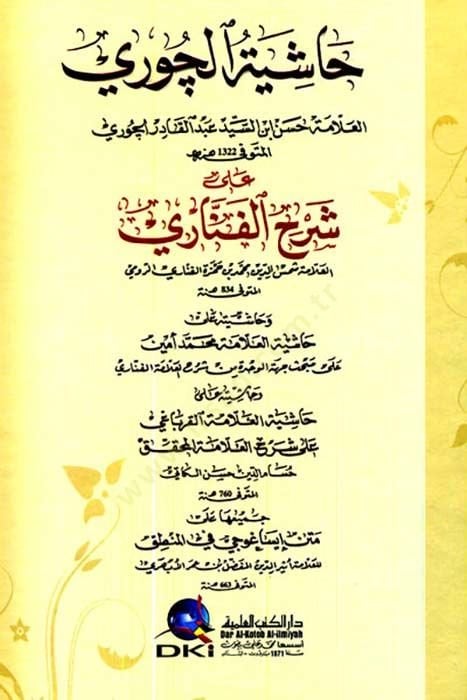 حاشية الچوري
العلامة حسن ابن السيد عبد القادر الچوري
المتوفى 1322 هـ
على
شرح الفناري
العلامة شمس الدين محمد بن حمزة الفناري الرومي
المتوفى 834 سنة
وحاشيته على
حاشية العلامة محمد أمين
على مبحث جهة الوحدة من شرح العلامة الفناري
وحاشيته على
حاشية العلامة القرهباغي
على شرح العلامة المحقق
حسام الدين حسن الكاتي
المتوفى 760 سنة
جميعها على
متن إيساغوجي في المنطق
للعلامة أثير الدين المفضل بن عمر الأبهري
المتوفى 663 سنة
دار الكتب العلمية
Dar Al-Kotob Al-ilmiyah
DKi
أسسها محمد علي بيضون
سنة 1971 بيروت - لبنان